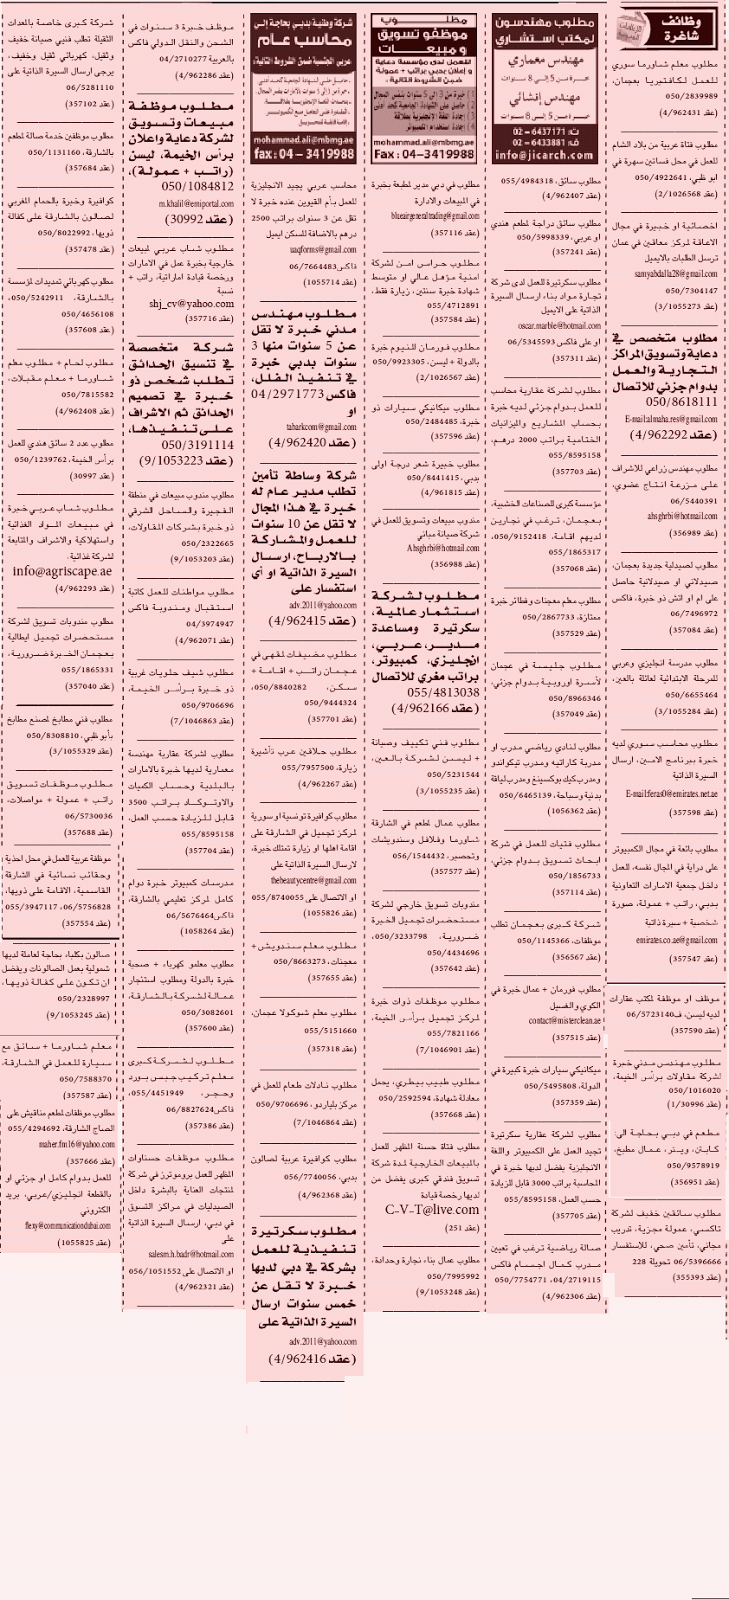 وظائف
شاغرة
مطلوب معلم شاورما سوري
للعمل لكافتيريا بعجمان،
050/2839989
(عقد 4/962431)
مطلوب فتاة عربية من بلاد الشام
للعمل في محل فساتين سهرة في
ابو ظبي، 050/4922641
(عقد 2/1026568)
اخصائية او خبيرة في مجال
الاعاقة لمركز معاقين في عمان
ترسل الطلبات بالايميل
samyabdalla28@gmail.com
050/7304147
(عقد 3/1055273)
مطلوب متخصص في
دعاية وتسويق المراكز
التجارية والعمل
بدوام جزئي للاتصال
050/8618111
E-mail:almaha.res@gmail.com
(عقد 4/962292)
مطلوب مهندس زراعي للاشراف
على مزرعة انتاج عضوي،
06/5440391
ahsghrbi@hotmail.com
(عقد 356989)
مطلوب لصيدلية جديدة بعجمان،
صيدلاني او صيدلانية حاصل
على ام او اتش ذو خبرة، فاكس
06/7496972
(عقد 357084)
مطلوب مدرسة انجليزي وعربي
للمرحلة الابتدائية لعائلة بالعين،
050/6655464
(عقد 3/1055284)
مطلوب محاسب سوري لديه
خبرة ببرنامج الامين، ارسال
السيرة الذاتية
E-mail:feras0@emirates.net.ae
(عقد 357598)
مطلوب بائعة في مجال الكمبيوتر
على دراية في المجال نفسه، للعمل
داخل جمعية الامارات التعاونية
بدبي، راتب + عمولة، صورة
شخصية + سيرة ذاتية
emirates.co.ae@gmail.com
(عقد 357547)
موظف او موظفة لمكتب عقارات
لديه ليسن، ف06/5723140
(عقد 357590)
مطلوب مهندس مدني خبرة
لشركة مقاولات برأس الخيمة،
050/1016020
(عقد 1/30996)
مطعم في دبي بحاجة الى:
كابتن، ويتر، عمال مطبخ،
050/9578919
(عقد 356951)
مطلوب سائقين خفيف لشركة
تاكسي، عمولة مجزية، تدريب
مجاني، تأمين صحي، للاستفسار
06/5396666 تحويلة 228
(عقد 355393)
مطلوب مهندسون
لمكتب استشاري
مهندس معماري
خبرة من 5 إلى 8 سنوات
مهندس إنشائي
خبرة من 5 إلى 8 سنوات
ت: 6437171 – 02
ف: 6433881 – 02
info@jicarch.com
مطلوب سائق، 055/4984318
(عقد 4/962407)
مطلوب سائق دراجة لمطعم هندي
او عربي، 050/5998339
(عقد 357241)
مطلوب سكرتيرة للعمل لدى شركة
تجارة مواد بناء، ارسال السيرة
الذاتية على الايميل
oscar.marble@hotmail.com
او على فاكس 06/5345593
(عقد 357311)
مطلوب لشركة عقارية محاسب
للعمل بدوام جزئي لديه خبرة
بحساب المشاريع والميزانيات
الختامية براتب 2000 درهم،
055/8595158
(عقد 357703)
مؤسسة كبرى للصناعات الخشبية،
بعجمان، ترغب في نجارين
لديهم اقامة، 050/9152418،
055/1865317
(عقد 357068)
مطلوب معلم معجنات وفطائر خبرة
ممتازة، 050/2867733
(عقد 357529)
مطلوب جليسة في عجمان
لأسرة اوروبية بدوام جزئي،
050/8966346
(عقد 357049)
مطلوب لنادي رياضي مدرب او
مدربة كاراتيه ومدرب تيكواندو
ومدرب كيك بوكسينغ ومدرب لياقة
بدنية وسباحة، 050/6465139
(عقد 1056362)
مطلوب فتيات للعمل في شركة
ابحاث تسويق بدوام جزئي،
050/1856733
(عقد 357114)
شركة كبرى بعجمان تطلب
موظفات، 050/1145366
(عقد 356567)
مطلوب فورمان + عمال خبرة في
الكوي والغسيل
contact@misterclean.ae
(عقد 357515)
ميكانيكي سيارات خبرة كبيرة في
الدولة، 050/5495808
(عقد 357359)
مطلوب لشركة عقارية سكرتيرة
تجيد العمل على الكمبيوتر واللغة
الانجليزية يفضل لديها خبرة في
المحاسبة براتب 3000 قابل للزيادة
حسب العمل، 055/8595158
(عقد 357705)
صالة رياضية ترغب في تعيين
مدرب كمال اجسام فاكس
04/2719115، 050/7754771
(عقد 4/962306)
مطلوب
موظفو تسويق
و مبيعات
للعمل لدى مؤسسة دعاية
و إعلان بدبي براتب + عمولة
ضمن الشروط التالية :
1 خبرة من 3 إلى 5 سنوات بنفس المجال
2 حاصل على الشهادة الجامعية كحد أدنى
3 إجادة اللغة الإنجليزية بطلاقة
4 إجادة استخدام الكمبيوتر
mohammad.ali@mbmg.ae
Fax : 04–3419988
مطلوب في دبي مدير لمطبعة بخبرة
في المبيعات والادارة
blueairgeneraltrading@gmail.com
(عقد 357116)
مطلوب حراس امن لشركة
امنية مؤهل عالي او متوسط
شهادة خبرة سنتين، زيارة فقط،
055/4712891
(عقد 357584)
مطلوب فورمان المنيوم خبرة
بالدولة + ليسن، 050/9923305
(عقد 2/1026567)
مطلوب ميكانيكي سيارات ذو
خبرة، 050/2484485
(عقد 357596)
مطلوب خبيرة شعر درجة اولى
بدبي، 050/8441415
(عقد 4/961815)
مندوب مبيعات وتسويق للعمل في
شركة صيانة مباني
Ahsghrbi@hotmail.com
(عقد 356988)
مطلوب لشركة
استثمار عالمية،
سكرتيرة ومساعدة
مدير، عربي،
انجليزي، كمبيوتر،
براتب مغري للاتصال
055/4813038
(عقد 4/962166)
مطلوب فني تكييف وصيانة
+ ليسن لشركة بالعين،
050/5231544
(عقد 3/1055235)
مطلوب عمال لمطعم في الشارقة
شاورما وفلافل وسندويشات
وتحضير، 056/1544432
(عقد 357577)
مندوبات تسويق خارجي لشركة
مستحضرات تجميل الخبرة
ضرورية، 050/3233798،
050/4434696
(عقد 357642)
مطلوب موظفات ذوات خبرة
لمركز تجميل برأس الخيمة،
055/7821166
(عقد 7/1046901)
مطلوب طبيب بيطري، يحمل
معادلة شهادة، 050/2592594
(عقد 357668)
مطلوب فتاة حسنة المظهر للعمل
بالمبيعات الخارجية لمدة شركة
تسويق فندقي كبرى يفضل من
لديها رخصة قيادة
C-V-T@live.com
(عقد 251)
مطلوب عمال بناء، نجارة وحدادة،
050/7995992
(عقد 9/1053248)
شركة وطنية بدبي بحاجة إلى
محاسب عام
عربي الجنسية ضمن الشروط التالية:
mohammad.ali@mbmg.ae
fax: 04 – 3419988
محاسب عربي يجيد الانجليزية
للعمل بأم القيوين عنده خبرة لا
تقل عن 3 سنوات براتب 2500
درهم بالاضافة للسكن ايميل
uaqforms@gmail.com
فاكس06/7664483
(عقد 1055714)
مطلوب مهندس
مدني خبرة لا تقل
عن 5 سنوات منها 3
سنوات بدبي خبرة
في تنفيذ الفلل،
فاكس 04/2971773
او
taharkcom@gmail.com
(عقد 4/962420)
شركة وساطة تأمين
تطلب مدير عام له
خبرة في هذا المجال
لا تقل عن 10 سنوات
للعمل والمشاركة
بالارباح، ارسال
السيرة الذاتية او أي
استفسار على
adv.2011@yahoo.com
(عقد 4/962415)
مطلوب مضيفات لمقهى في
عجمان راتب + اقامة +
سكن، 050/8840282،
050/9444324
(عقد 357701)
مطلوب حلاقين عرب تأشيرة
زيارة، 055/7957500
(عقد 4/962267)
مطلوب كوافيرة تونسية او سورية
لمركز تجميل في الشارقة على
اقامة اهلها او زيارة تمتلك خبرة،
لارسال السيرة الذاتية على
thebeautycentre@gmail.com
او الاتصال على 055/8740055
(عقد 1055826)
مطلوب معلم سندويش +
معجنات، 050/8663273
(عقد 357655)
مطلوب معلم شوكولا عجمان،
055/5151660
(عقد 357318)
مطلوب نادلات طعام للعمل في
مركز بلياردو، 050/9706696
(عقد 7/1046864)
مطلوب كوافيرة عربية لصالون
بدبي، 056/7740056
(عقد 4/962368)
مطلوب سكرتيرة
تنفيذية للعمل
بشركة في دبي لديها
خبرة لا تقل عن
خمس سنوات ارسال
السيرة الذاتية على
adv.2011@yahoo.com
(عقد 4/962416)
موظف خبرة 3 سنوات في
الشحن والنقل الدولي فاكس
بالعربية 04/2710277
(عقد 4/962286)
مطلوب موظفة
مبيعات وتسويق
لشركة دعاية واعلان
برأس الخيمة، ليسن
(راتب + عمولة)،
050/1084812
m.khalil@emiportal.com
(عقد 30992)
مطلوب شاب عربي لمبيعات
خارجية بخبرة عمل في الامارات
ورخصة قيادة اماراتية، راتب +
نسبة
shj_cv@yahoo.com
(عقد 357716)
شركة متخصصة
في تنسيق الحدائق
تطلب شخص ذو
خبرة في تصميم
الحدائق ثم الاشراف
على تنفيذها،
050/3191114
(عقد 9/1053223)
مطلوب مندوب مبيعات في منطقة
الفجيرة والساحل الشرقي
ذو خبرة بشركات المقاولات،
050/2322665
(عقد 9/1053203)
مطلوب مواطنات للعمل كاتبة
استقبال ومندوبة فاكس
04/3974947
(عقد 4/962071)
مطلوب شيف حلويات غربية
ذو خبرة برأس الخيمة،
050/9706696
(عقد 7/1046863)
مطلوب لشركة عقارية مهندسة
معمارية لديها خبرة بالامارات
بالبلدية وحساب الكميات
والاوتوكاد براتب 3500
قابل للزيادة حسب العمل،
055/8595158
(عقد 357704)
مدرسات كمبيوتر خبرة دوام
كامل لمركز تعليمي بالشارقة،
فاكس06/5676464
(عقد 1058264)
مطلوب معلمو كهرباء + صحية
خبرة بالدولة ومطلوب استئجار
عمالة لشركة بالشارقة،
050/3082601
(عقد 357600)
مطلوب لشركة كبرى
معلم تركيب جبس بورد
وحجر، 055/4451949،
فاكس06/8827624
(عقد 357386)
مطلوب موظفات حسناوات
المظهر للعمل بروموترز في شركة
لمنتجات العناية بالبشرة داخل
الصيدليات في مراكز التسوق
في دبي، ارسال السيرة الذاتية
على
salesm.h.badr@hotmail.com
او الاتصال على 056/1051552
(عقد 4/962321)
شركة كبرى خاصة بالمعدات
الثقيلة تطلب فنيي صيانة خفيف
وثقيل، كهربائي ثقيل وخفيف،
يرجى ارسال السيرة الذاتية على
06/5281110
(عقد 357102)
مطلوب موظفين خدمة صالة لمطعم
بالشارقة، 050/1131160
(عقد 357684)
كوافيرة وخبيرة بالحمام المغربي
لصالون بالشارقة على كفالة
ذويها، 050/8022992
(عقد 357478)
مطلوب كهربائي تمديدات لمؤسسة
بالشارقة، 050/5242911،
050/4656108
(عقد 357608)
مطلوب لحام + مطلوب معلم
شاورما + معلم مقبلات،
050/7815582
(عقد 4/962408)
مطلوب عدد 2 سائق هندي للعمل
برأس الخيمة، 050/1239762
(عقد 30997)
مطلوب شباب عربي خبرة
في مبيعات المواد الغذائية
واستهلاكية والاشراف والمتابعة
لشركة غذائية.
info@agriscape.ae
(عقد 4/962293)
مطلوب مندوبات تسويق لشركة
مستحضرات تجميل ايطالية
بعجمان الخبرة ضرورية،
055/1865331
(عقد 357040)
مطلوب فني مطابخ لمصنع مطابخ
بأبوظبي، 050/8308810
(عقد 3/1055329)
مطلوب موظفات تسويق
راتب + عمولة + مواصلات،
06/5730036
(عقد 357688)
موظفة عربية للعمل في محل احذية
وحقائب نسائية في الشارقة
القاسمية، الاقامة على ذويها،
06/5756828، 055/3947117
(عقد 357554)
صالون بكلباء بحاجة لعاملة لديها
شمولية بعمل الصالونات ويفضل
ان تكون على كفالة ذويها،
050/2328997
(عقد 9/1053245)
معلم شاورما + سائق مع
سيارة للعمل في الشارقة،
050/7588370
(عقد 357587)
مطلوب موظفات لمطعم مناقيش على
الصاج الشارقة، 055/4294692
maher.fm16@yahoo.com
(عقد 357666)
للعمل بدوام كامل او جزئي او
بالقطعة انجليزي/عربي، بريد
الكتروني
flexy@communicationdubai.com
(عقد 1055825)